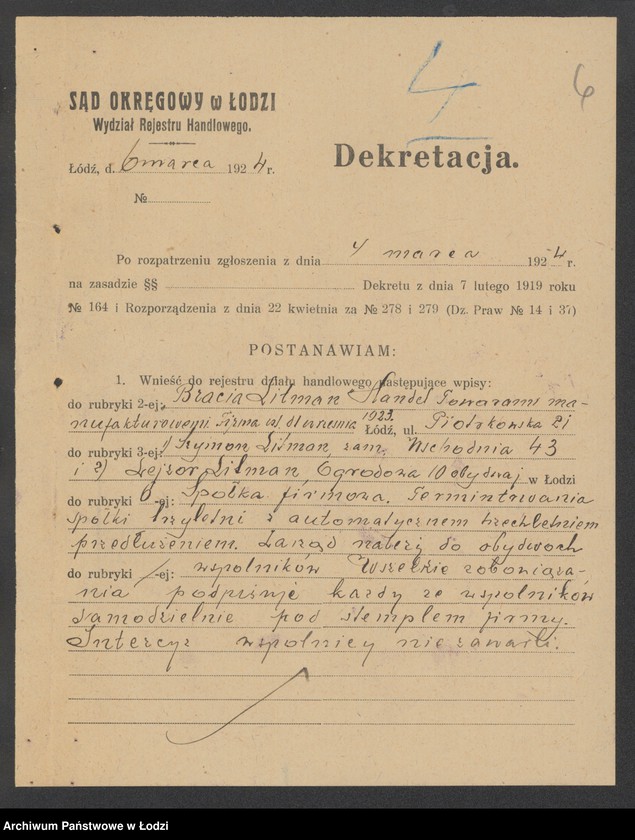 4
6
SĄD OKRĘGOWY w ŁODZI
Wydział Rejestru Handlowego.
Dekretacja.
Łódź, d. 6 marca 1924 r.
№
Po rozpatrzeniu zgłoszenia z dnia 4 marca 1924 r.
na zasadzie §§ Dekretu z dnia 7 lutego 1919 roku
№ 164 i Rozporządzenia z dnia 22 kwietnia za № 278 i 279 (Dz. Praw № 14 i 37)
POSTANAWIAM:
1. Wnieść do rejestru działu handlowego następujące wpisy:
do rubryki 2-ej: Bracia Litman Handel Towarami ma-
nufakturowymi Firma ist. 1923. Łódź, ul. Piotrkowska 21
do rubryki 3-ej: 1) Szymon Litman, zam. Wschodnia 43
i 2) Lejzor Litman, Ogrodowa 10 obydwaj w Łodzi
do rubryki 6-ej: Spółka firmowa. Termin trwania
spółki trzyletni z automatycznem trzechletniem
przedłużeniem. Zarząd należy do obydwoch
do rubryki -ej: wspolników Wszelkie zobowiąza-
nia podpisuje każdy ze wspolników
samodzielnie pod stemplem firmy.
Intercyz wspolnicy nie zawarli.
Archiwum Państwowe w Łodzi